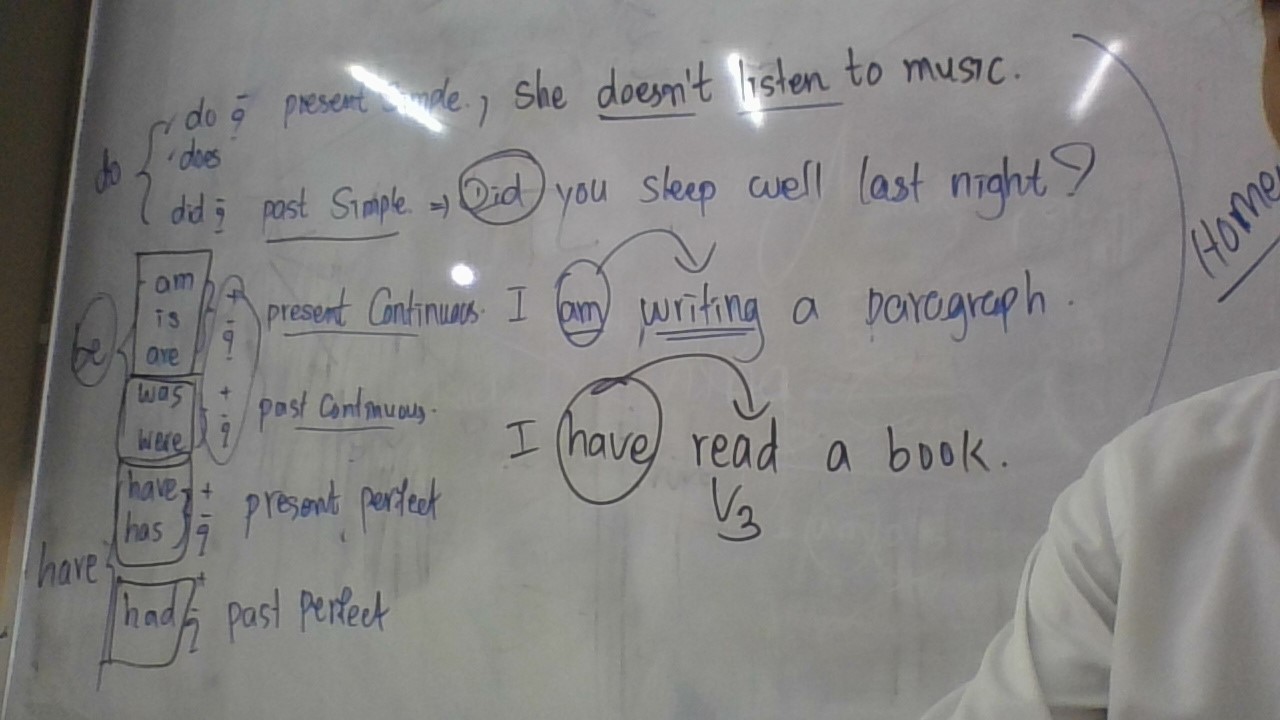 do - ? present Simple., She doesn't listen to music.
do
does
did - ? past Simple. => Did you sleep well last night?
be
am
is
are
+ - ? present Continuous. I am writing a paragraph.
was
were
+ - ? past Continuous.
I have read a book.
V3
have
has
+ - ? present perfect
have
had + - ? past perfect
Home